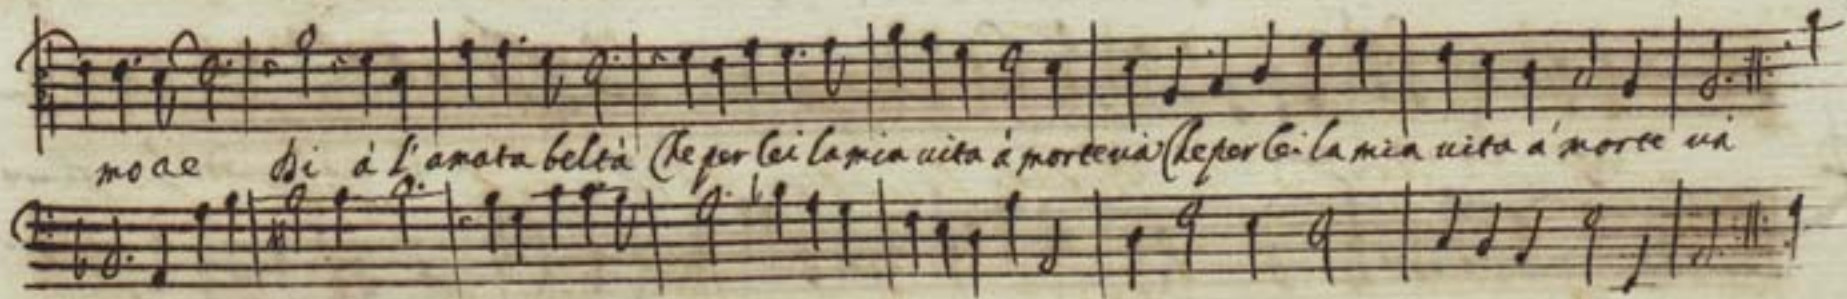 more Di á L'amata beltà Che per lei la mia uita á morte uà Che per lei la mia uita á morte uà